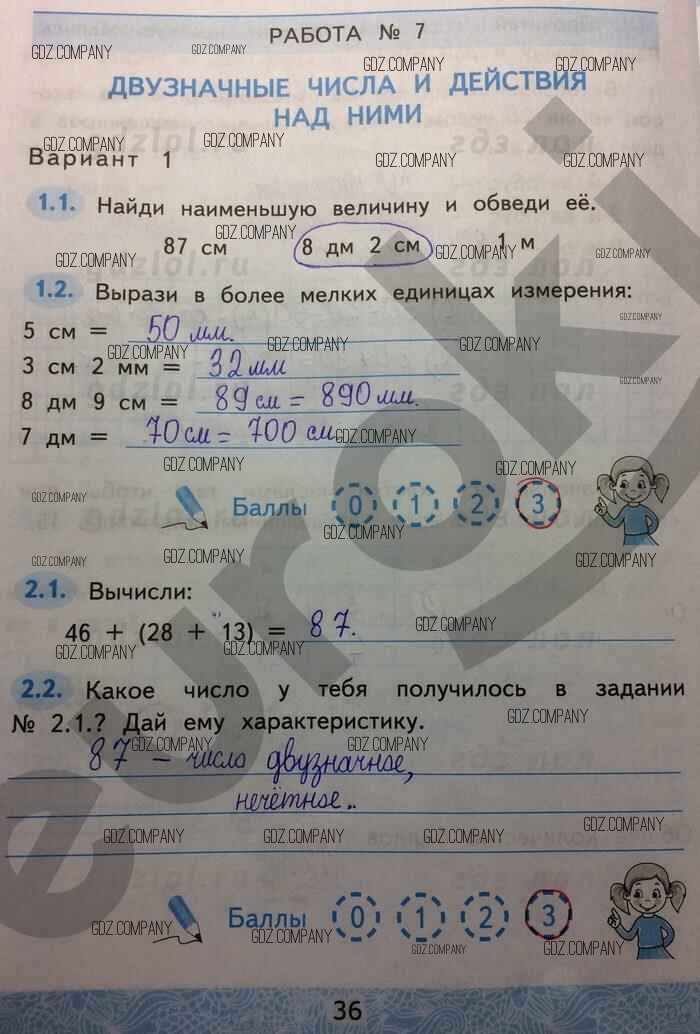 РАБОТА № 7
ДВУЗНАЧНЫЕ ЧИСЛА И ДЕЙСТВИЯ
НАД НИМИ
Вариант 1
1.1. Найди наименьшую величину и обведи её.
87 см 8 дм 2 см 1 м
1.2. Вырази в более мелких единицах измерения:
5 см = 50 мм.
3 см 2 мм = 32 мм
8 дм 9 см = 89 см = 890 мм.
7 дм = 70 см = 700 см
Баллы 0 1 2 3
2.1. Вычисли:
46 + (28 + 13) = 87.
2.2. Какое число у тебя получилось в задании
№ 2.1.? Дай ему характеристику.
87 – число двузначное,
нечётное..
Баллы 0 1 2 3
36
GDZ.COMPANY
euroki